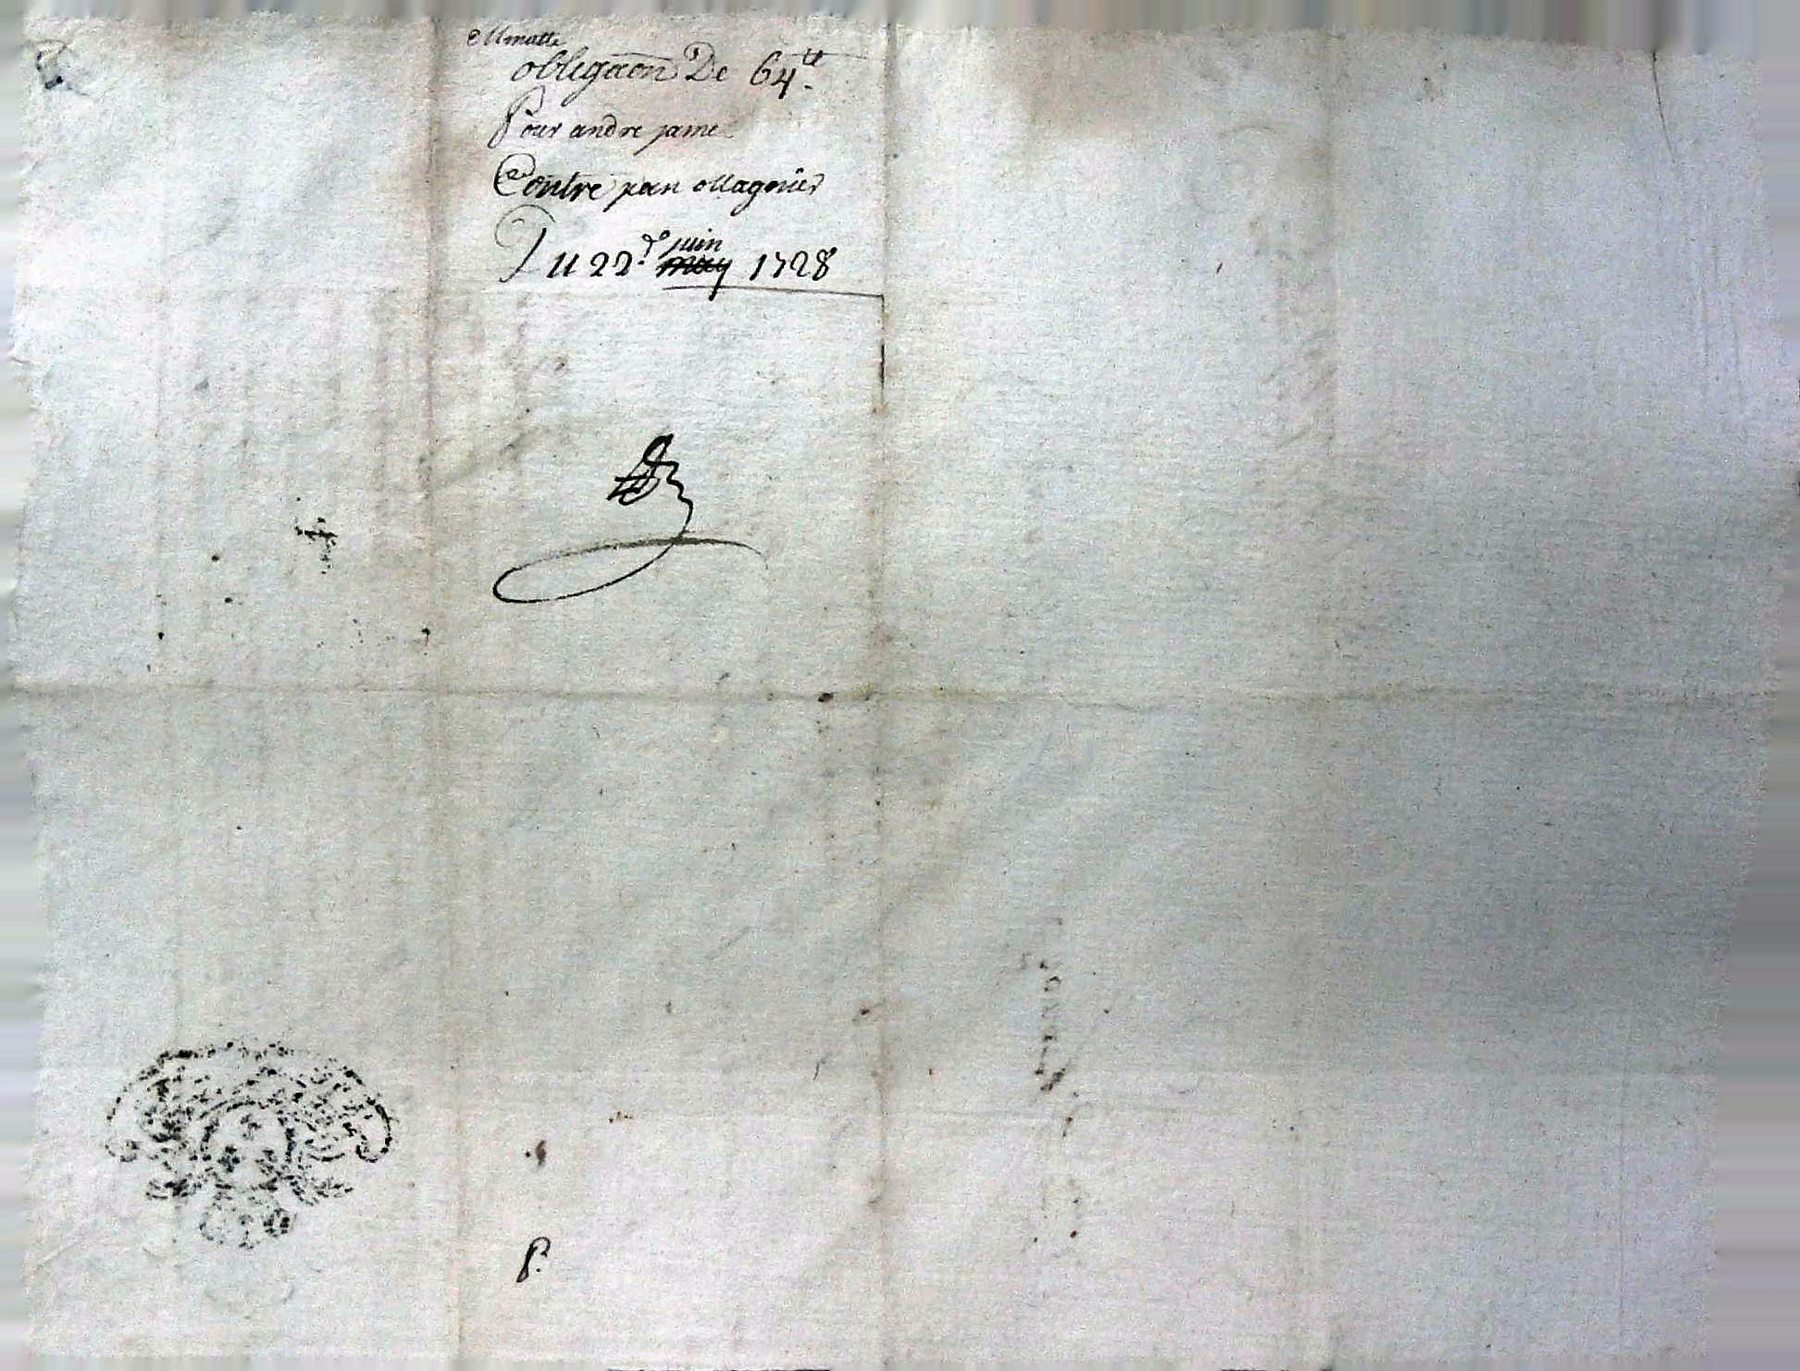 obligaon De 64ᵗᵗ
Pour andre jame
Contre jean ollagnier
Du 22.ᵉ juin may 1728
P.